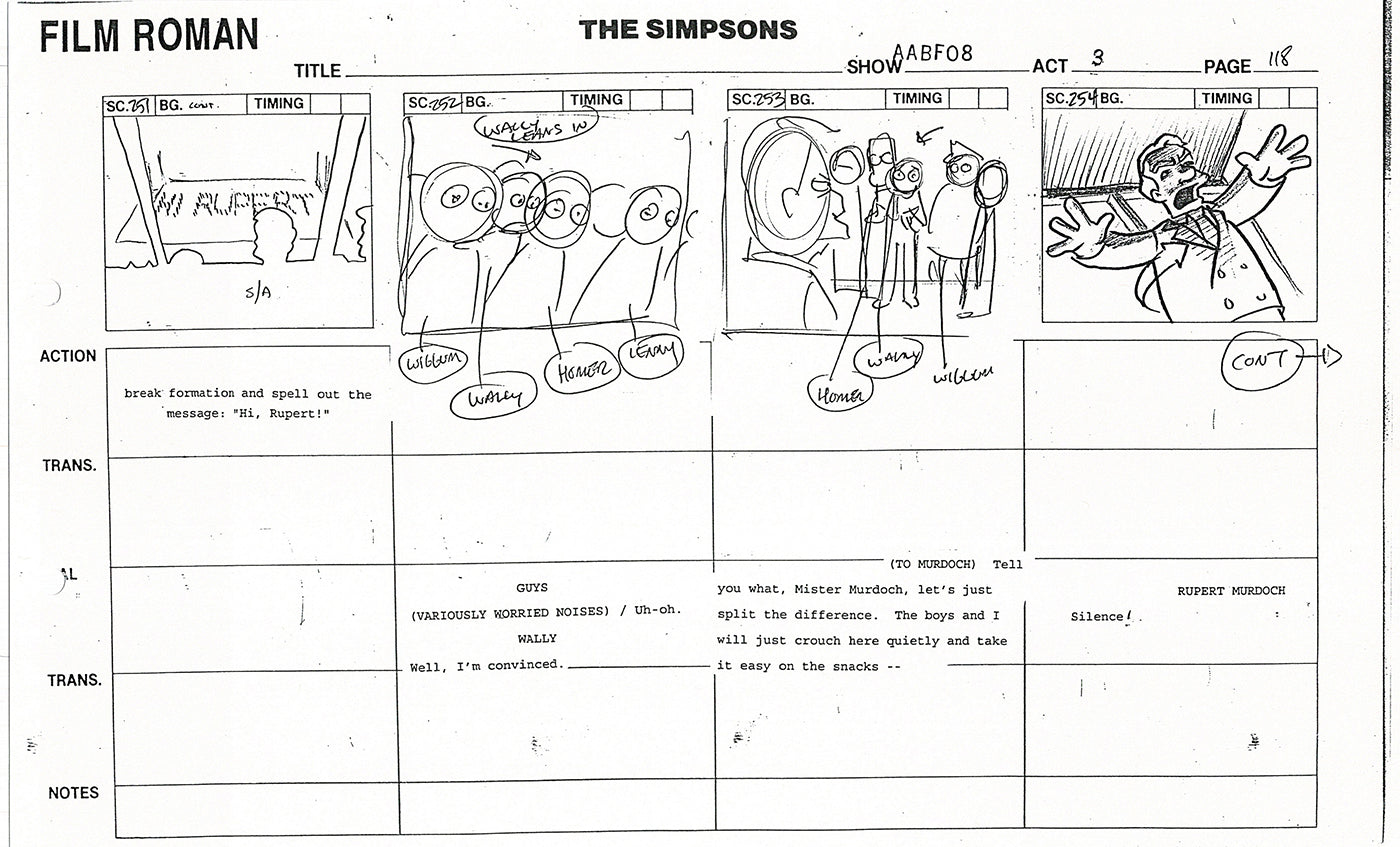 FILM ROMAN
THE SIMPSONS
TITLE
SHOW AABF08
ACT 3
PAGE 118
SC. 251 BG. cont. TIMING
SC. 252 BG. TIMING
SC. 253 BG. TIMING
SC. 254 BG. TIMING
WALLY
LEANS IN
HI RUPERT
S/A
WIGGUM
WALLY
HOMER
LENNY
HOMER
WALLY
WIGGUM
CONT
ACTION
break formation and spell out the
message: "Hi, Rupert!"
TRANS.
AL
GUYS
(VARIOUSLY WORRIED NOISES) / Uh-oh.
WALLY
Well, I'm convinced.
(TO MURDOCH) Tell
you what, Mister Murdoch, let's just
split the difference. The boys and I
will just crouch here quietly and take
it easy on the snacks --
RUPERT MURDOCH
Silence!
TRANS.
NOTES